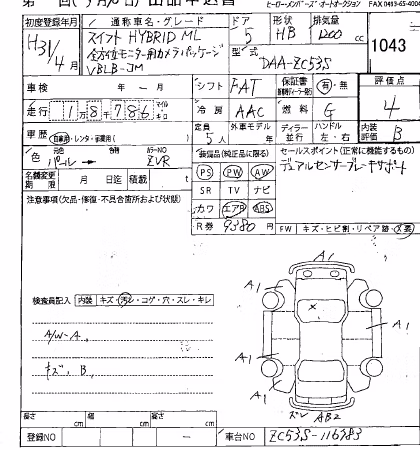 ヒーロー・メンバーズ・オートオークション FAX 0413-65-4004
初度登録年月 通称車名・グレード ドア 形状 排気量
H31/4月 スイフト HYBRID ML 5 HB 1200 cc 1043
全方位モニター用カメラパッケージ
VBLB-JM 型式 DAA-ZC53S
車検 年 - 月 シフト FAT 保証書 有・無 評価点
走行 1万8786 冷房 AAC 燃料 G 4
車歴 自家用・レンタ・ 定員 5人 外車モデル 年 ディラー 並行 ハンドル 左・右 内装評価 B
色 元色 パール 色替 カラーNO ZVR
装備品(純正品に限る) セールスポイント(正常に機能するもの)
PS PW AW デュアルセンサーブレーキサポート
名義変更期限 月 日迄 積載 t
SR TV ナビ
注意事項(欠品・修復・不具合箇所および状態)
カワ エアB ABS
R券 9380円 FW キズ・ヒビ割・リペア跡・X要
検査員記入 内装 キズ・汚レ・コゲ・穴・スレ・キレ
A/W-A、
キズ、B、
A1
A1
A1
A1
A1
A1
X
AB2
長さ cm 幅 cm 高さ cm
登録NO - 車台NO ZC53S-116383